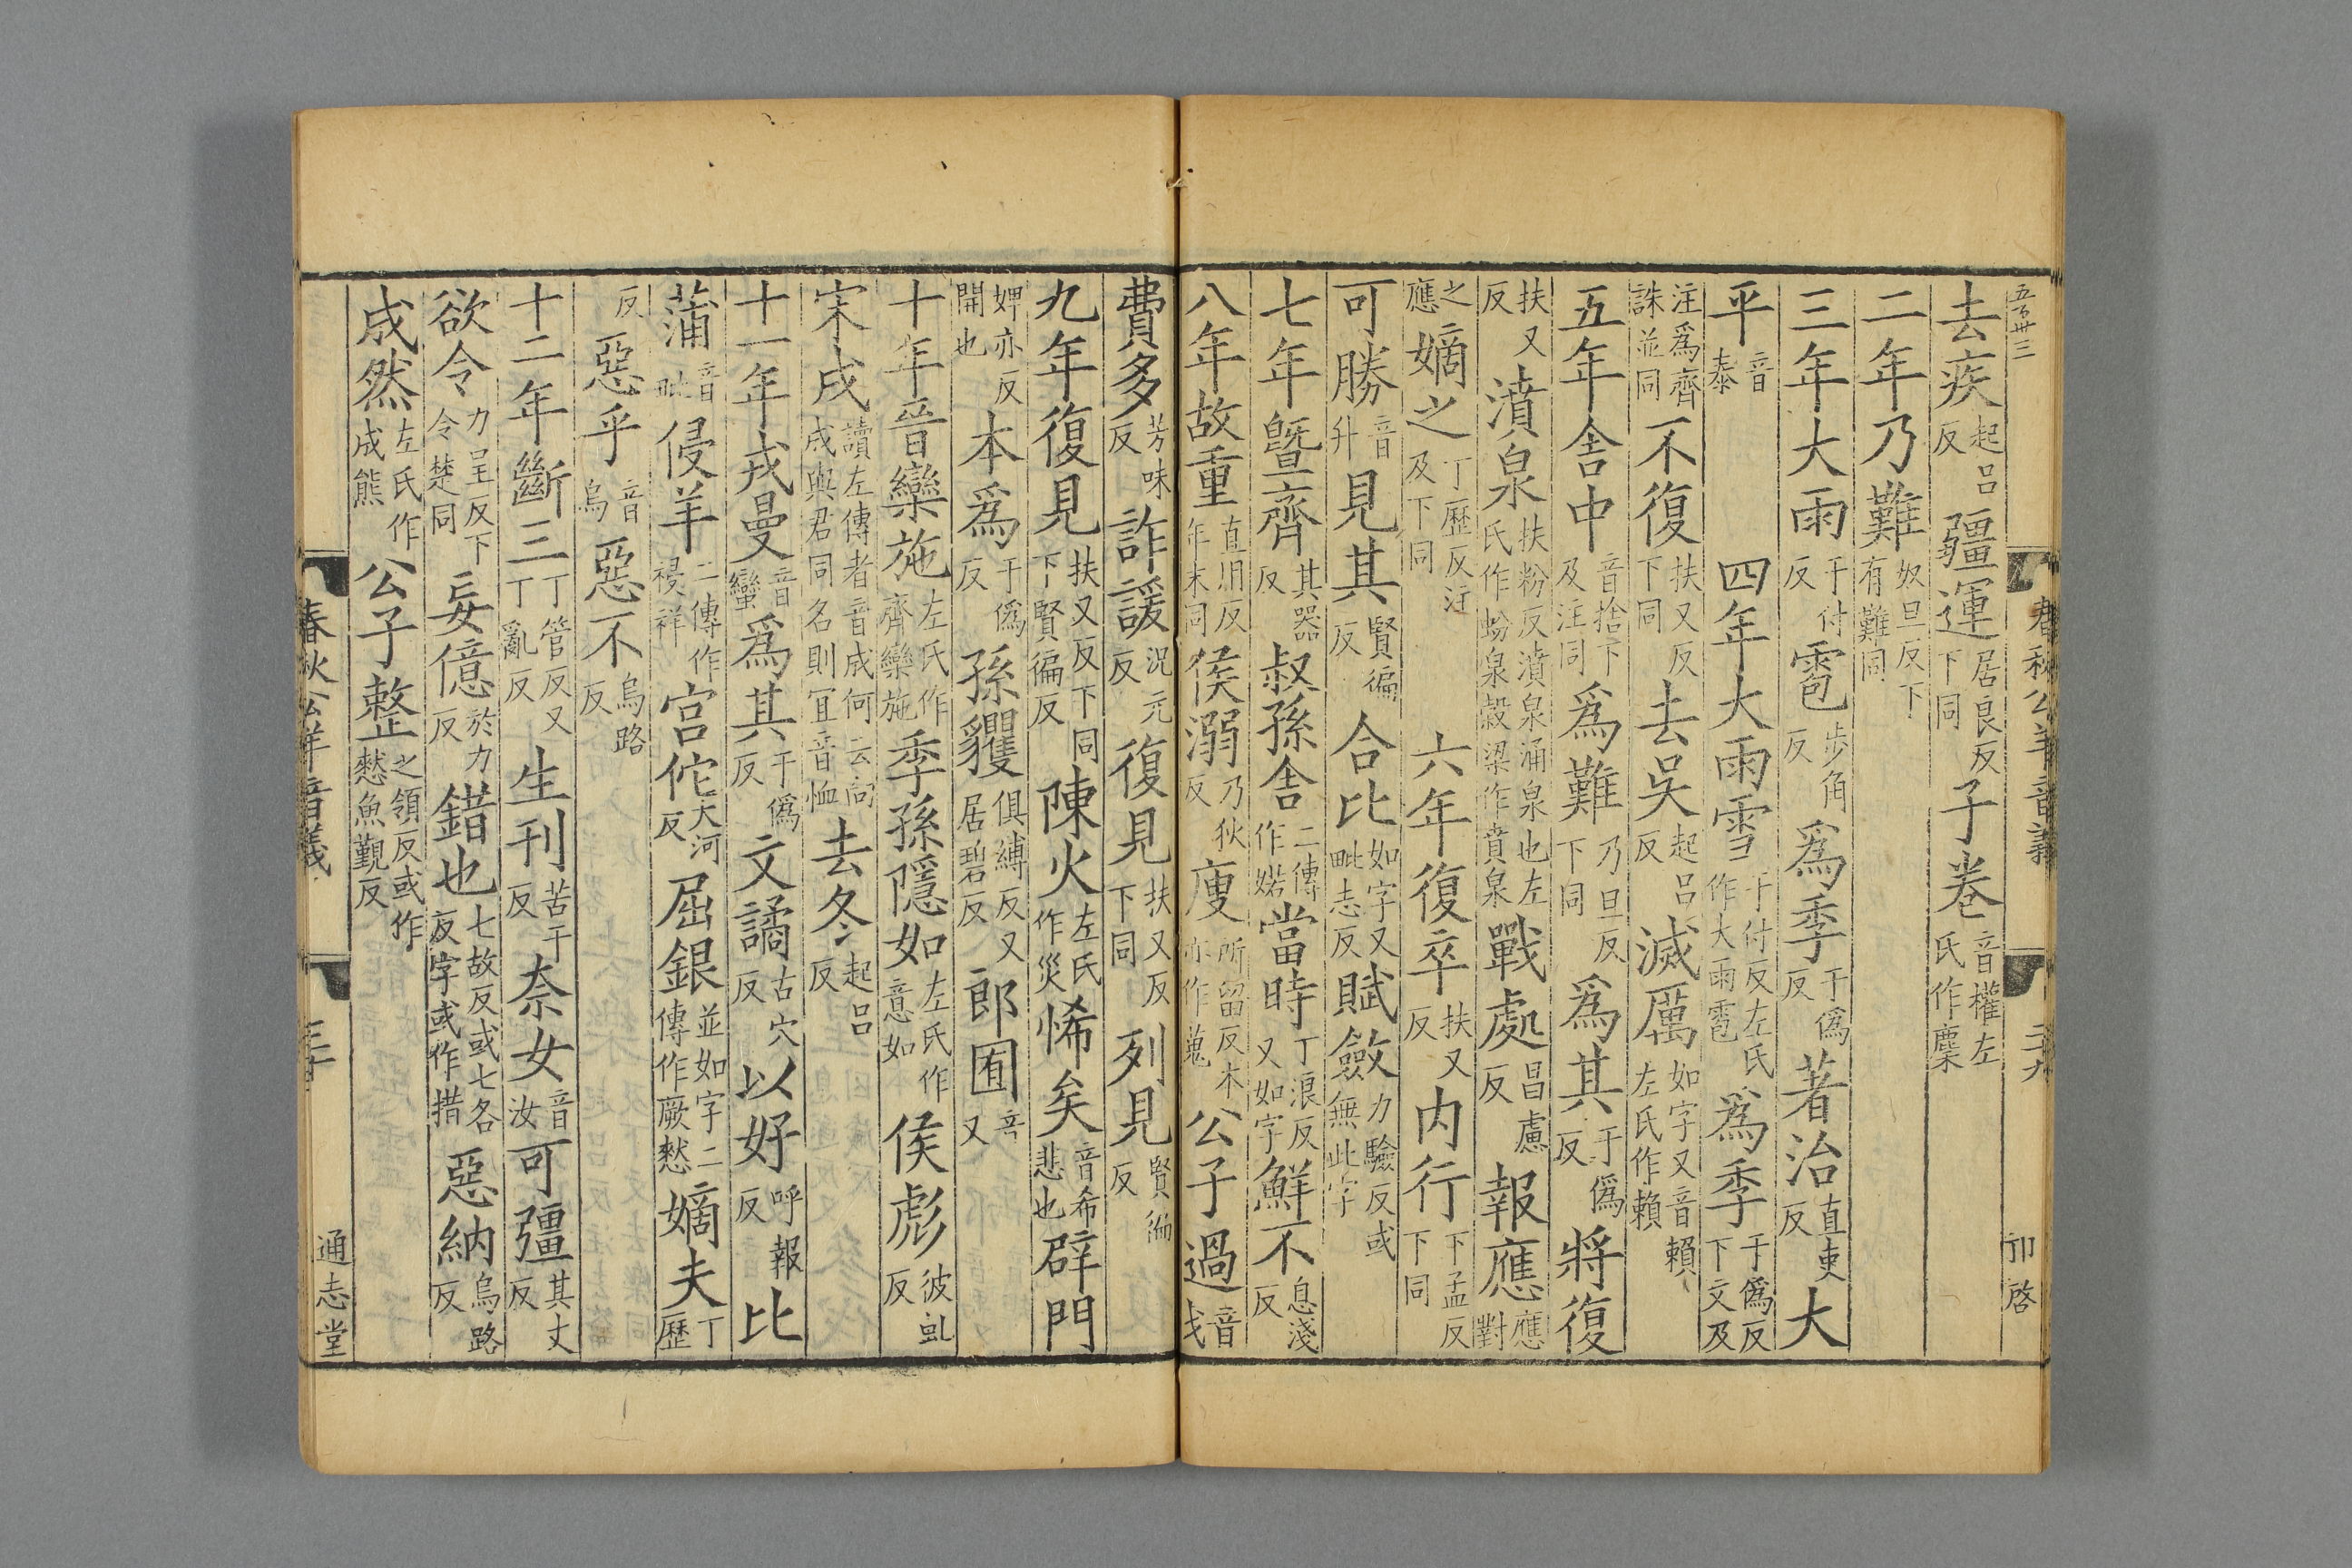 五百卅三
春秋公羊音義
二九
卬啓
去疾起吕反疆運居良反下同子卷音權左氏作麇
二年乃難奴旦反下有難同
三年大雨于付反雹步角反爲季于僞反著治直吏反大
平音泰四年大雨雪于付反左氏作大雨雹爲季于僞反下文及
注爲齊誅並同不復扶又反下同去吳起吕反滅厲如字又音賴左氏作賴
五年舎中音捨下及注同爲難乃旦反下同爲其于僞反將復
扶又反濆泉扶粉反濆泉涌泉也左氏作蚡泉榖梁作賁泉戰處昌慮反報應應對
之應嫡之丁歷反注及下同六年復卒扶又反内行下孟反下同
可勝音升見其賢徧反合比如字又毗志反賦斂力驗反或無此字
七年曁齊其器反叔孫舎二傳作婼當時丁浪反又如字鮮不息淺反
八年故重直用反年末同侯溺乃狄反廋所留反本亦作蒐公子過音戈
費多芳味反詐諼况元反復見扶又反下同列見賢徧反
九年復見扶又反下同下賢徧反陳火左氏作災悕矣音希悲也辟門
婢亦反開也本爲于僞反孫貜俱縛反又居碧反郎囿音又
十年晉欒施左氏作齊欒施季孫隱如左氏作意如侯彪彼虬反
宋戌讀左傳者音戌何云向戌與君同名則宜音恤去冬起吕反
十一年戎曼音蠻爲其于僞反文譎古穴反以好呼報反比
蒲音毗侵羊二傳作祲祥宫佗大河反屈銀並如字二傳作厥憖嫡夫丁歷
反惡乎音烏惡不烏路反
十二年斷三丁管反又丁亂反生刊苦干反奈女音汝可彊其丈反
欲令力呈反下令楚同妄億於力反錯也七故反或七各反字或作措惡納烏路反
成然左氏作成熊公子整之領反或作憖魚覲反
春秋公羊音義
三十
通志堂